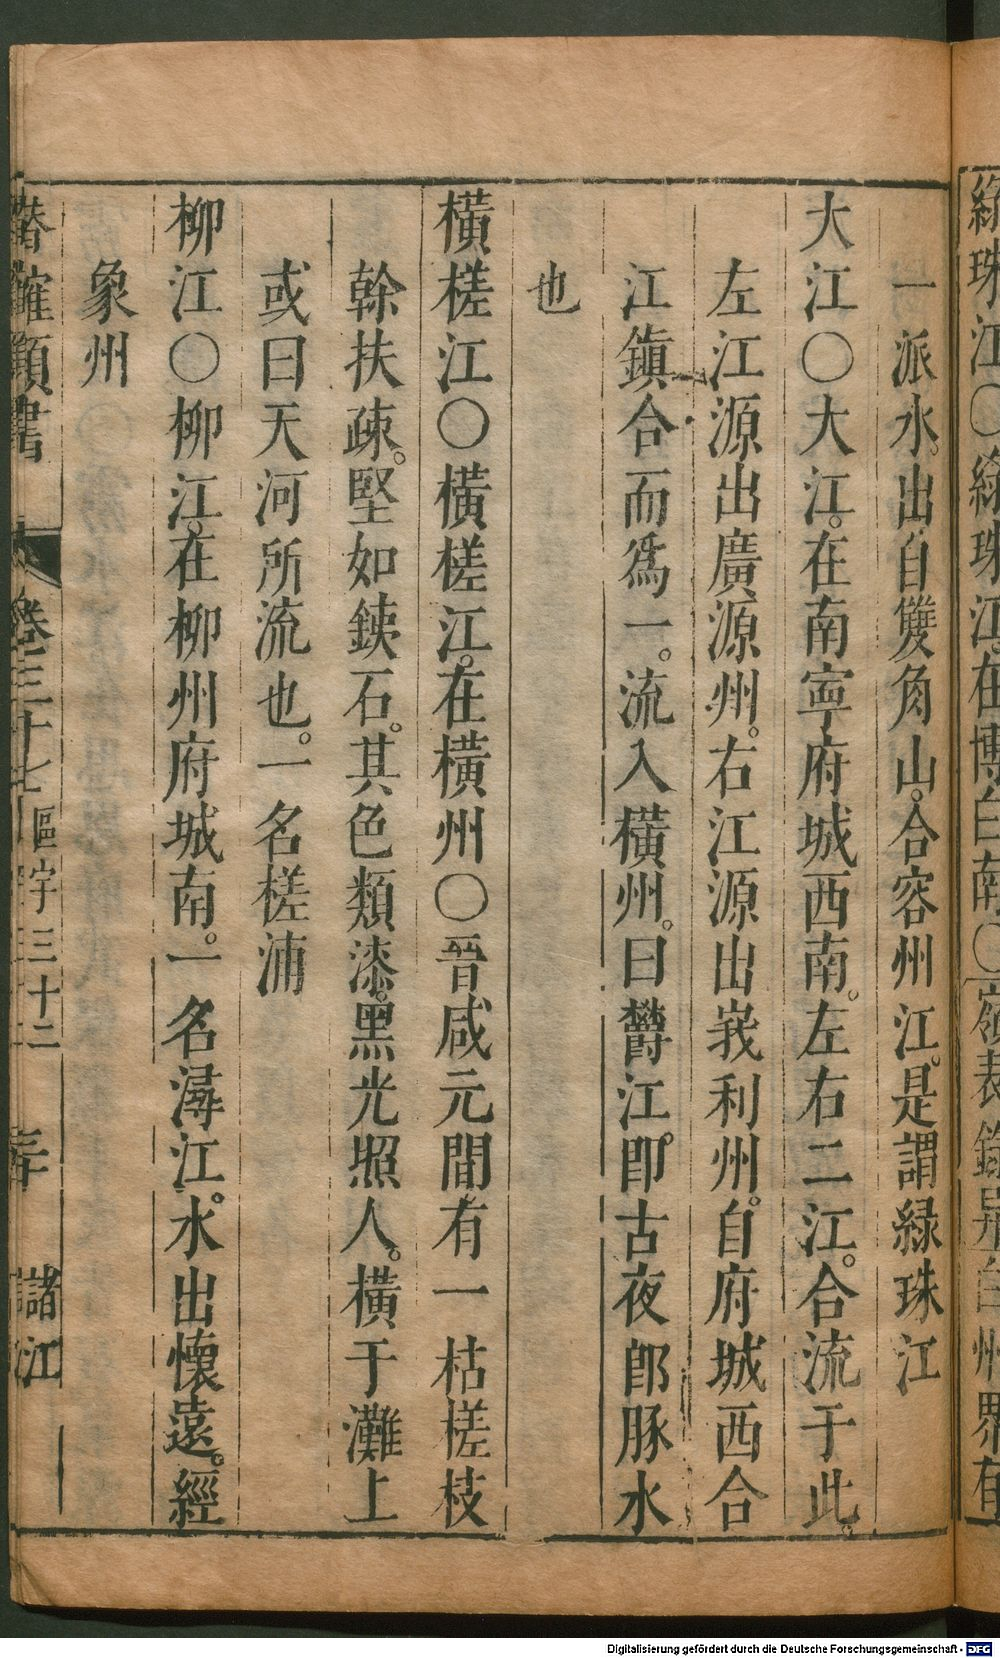 綠珠江○綠珠江。在博白南○嶺表錄異白州界有
一派水。出自雙角山。合容州江。是謂緑珠江
大江○大江。在南寧府城西南。左右二江。合流于此。
左江源出廣源州。右江源出峩利州。自府城西合
江鎭合而爲一。流入橫州。曰欝江。卽古夜郎豚水
也
橫槎江○橫槎江。在橫州○晉咸元間有一枯槎枝
幹扶疎。堅如鋨石。其色類漆。黑光照人。橫于灘上
或曰天河所流也。一名槎浦
柳江○柳江。在柳州府城南。一名潯江。水出懷遠。經
象州
潛確類書 卷三十七 區宇三十二 三十 諸江
Digitalisierung gefördert durch die Deutsche Forschungsgemeinschaft - DFG